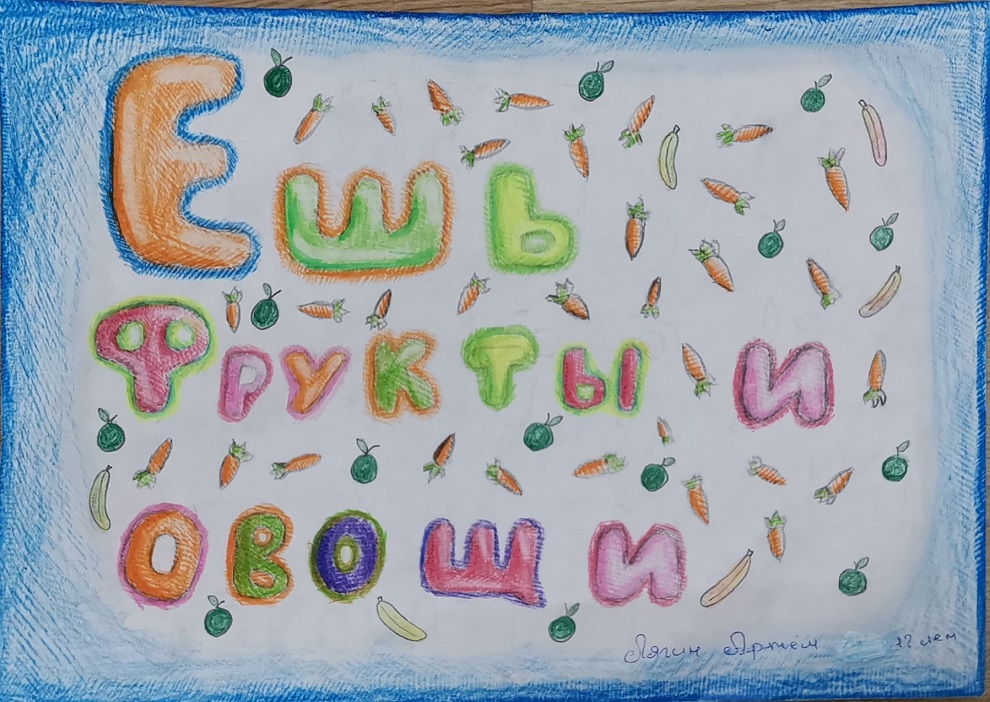 Ешь
Фрукты и
овощи
Лягин Артём 12 лет